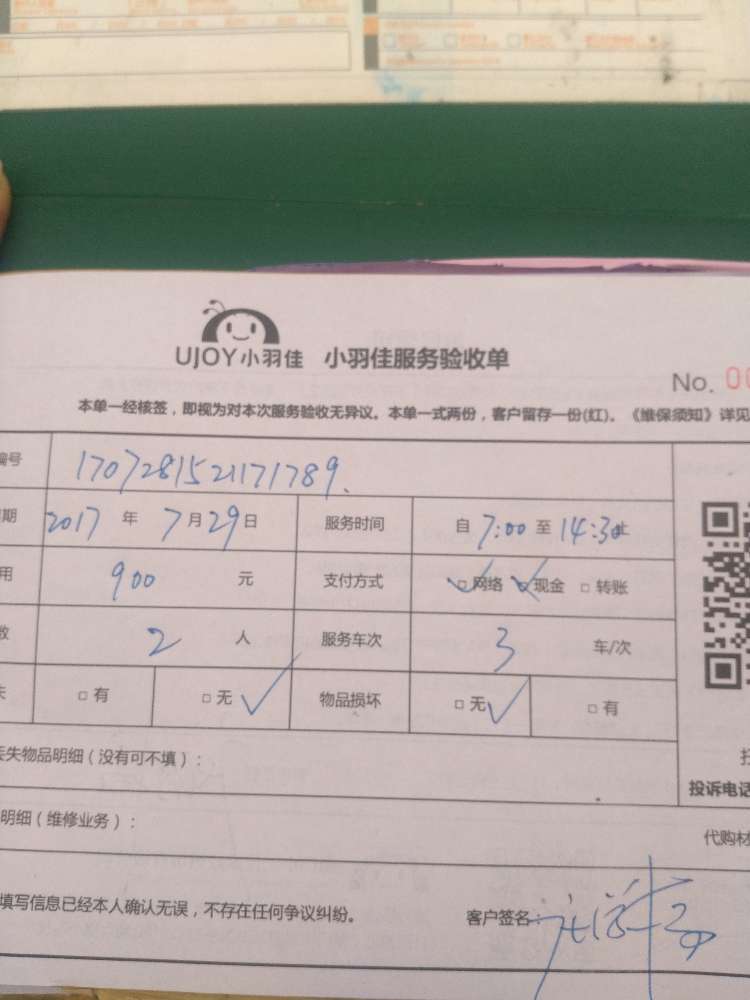 UJOY小羽佳 小羽佳服务验收单
No. 00
本单一经核签，即视为对本次服务验收无异议。本单一式两份，客户留存一份(红)。《维保须知》详见
编号 1707281521171789
期 2017 年 7 月 29 日 服务时间 自 7:00 至 14:30止
用 900 元 支付方式 □ 网络 □ 现金 □ 转账
数 2 人 服务车次 3 车/次
失 □ 有 □ 无 物品损坏 □ 无 □ 有
丢失物品明细（没有可不填）：
投诉电话
明细（维修业务）：
代购材
填写信息已经本人确认无误，不存在任何争议纠纷。 客户签名